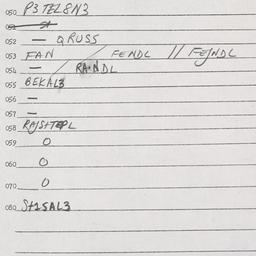 050 P3 TEL8N3
052 — QRUSS
053 FAN / FENDL // FEJNDL
054 — / RANDL
055 BEKAL3
056 —
057 —
058
059 O
060 O
070 O
080 St1SAL3